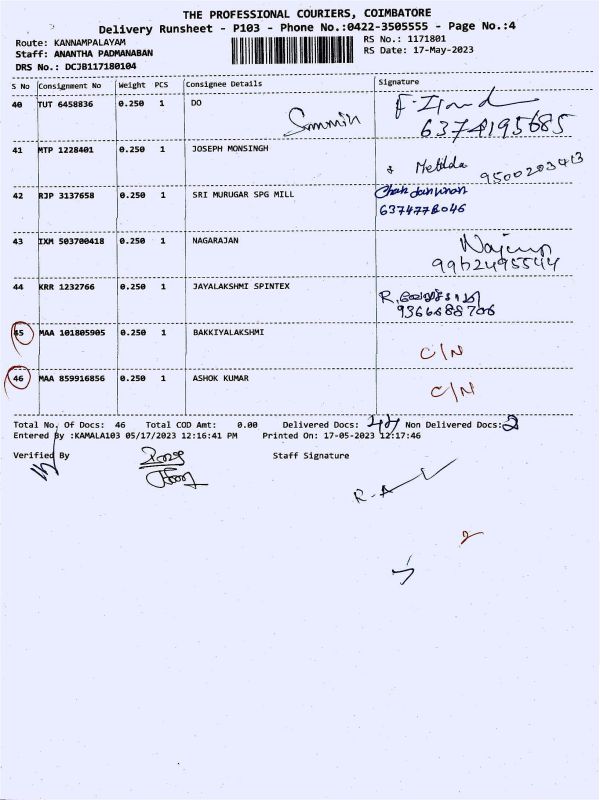 THE PROFESSIONAL COURIERS, COIMBATORE
Delivery Runsheet - P103 - Phone No.:0422-3505555 - Page No.:4
Route: KANNAMPALAYAM RS No.: 1171801
Staff: ANANTHA PADMANABAN RS Date: 17-May-2023
DRS No.: DCJB117180104
S No Consignment No Weight PCS Consignee Details Signature
40 TUT 6458836 0.250 1 DO
6374195685
41 MTP 1228401 0.250 1 JOSEPH MONSINGH
Metilda 9500203413
42 RJP 3137658 0.250 1 SRI MURUGAR SPG MILL
6374778046
43 IXM 503700418 0.250 1 NAGARAJAN
9962495544
44 KRR 1232766 0.250 1 JAYALAKSHMI SPINTEX
9366688706
45 MAA 101805905 0.250 1 BAKKIYALAKSHMI
C/N
46 MAA 859916856 0.250 1 ASHOK KUMAR
C/N
Total No. Of Docs: 46 Total COD Amt: 0.00 Delivered Docs: 44 Non Delivered Docs: 2
Entered By :KAMALA103 05/17/2023 12:16:41 PM Printed On: 17-05-2023 12:17:46
Verified By Staff Signature
2